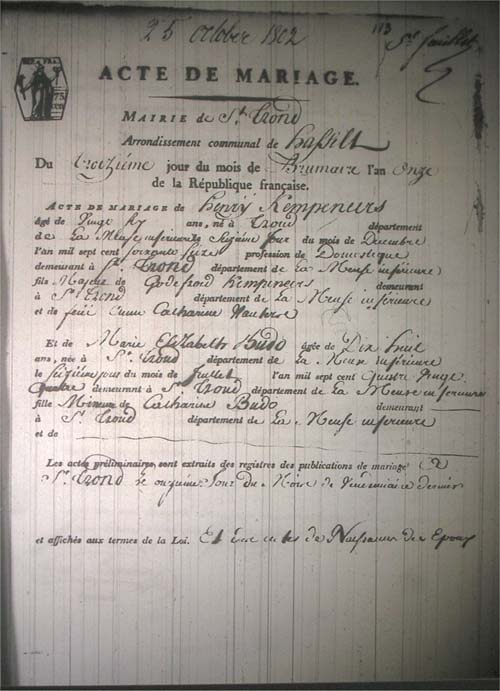 25 October 1802
113
ACTE DE MARIAGE.
MAIRIE de St. Trond
Arrondissement communal de hasselt
Du treiziéme jour du mois de Brumaire l'an Onze
de la République française.
ACTE DE MARIAGE de henry Kempeneurs
âgé de Vingt six ans, né à Trond département
de La Meuse inférieure le Sixiéme jour du mois de Decembre
l'an mil sept cent soixante seize profession de Domestique
demeurant à St. Trond département de La Meuse inférieure
fils Majeur de Godefroid Kempeneurs demeurant
à St. Trond département de La Meuse inférieure
et de feüe Anne Catharine
Et de Marie Elizabeth Budo âgée de Dix huit
ans, née à St. Trond département de La Meuse inférieure
le Sixiéme jour du mois de Juillet l'an mil sept cent Quatre Vingt
Quatre demeurant à St. Trond département de La Meuse inferieure
fille Mineure de Catharine Budo demeurant
à St. Trond département de La Meuse inferieure
et de
Les actes préliminaires sont extraits des registres des publications de mariage de
St. Trond le onzieme Jour du Mois de Vendemiaire dernier
et affichés aux termes de la Loi. Et des actes de Naissance des Epoux